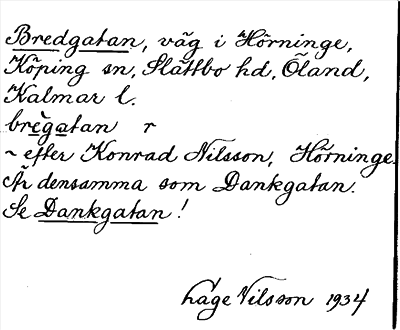 Bredgatan, väg i Hörninge,
Köping sn, Slättbo hd, Öland,
Kalmar l.
brègatan r
~ efter Konrad Nilsson, Hörninge.
Är densamma som Dankgatan.
Se Dankgatan!
Åge Nilsson 1934